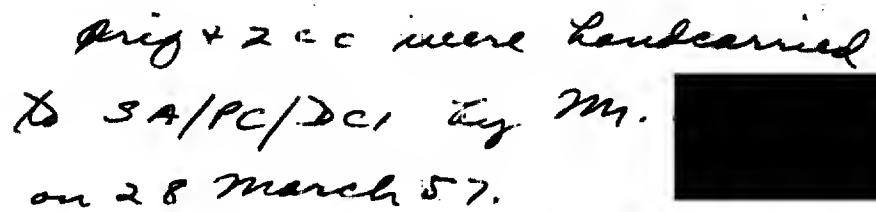 Orig + 2 cc were handcarried
to SA/PC/DCI by Mr.
on 28 March 57.